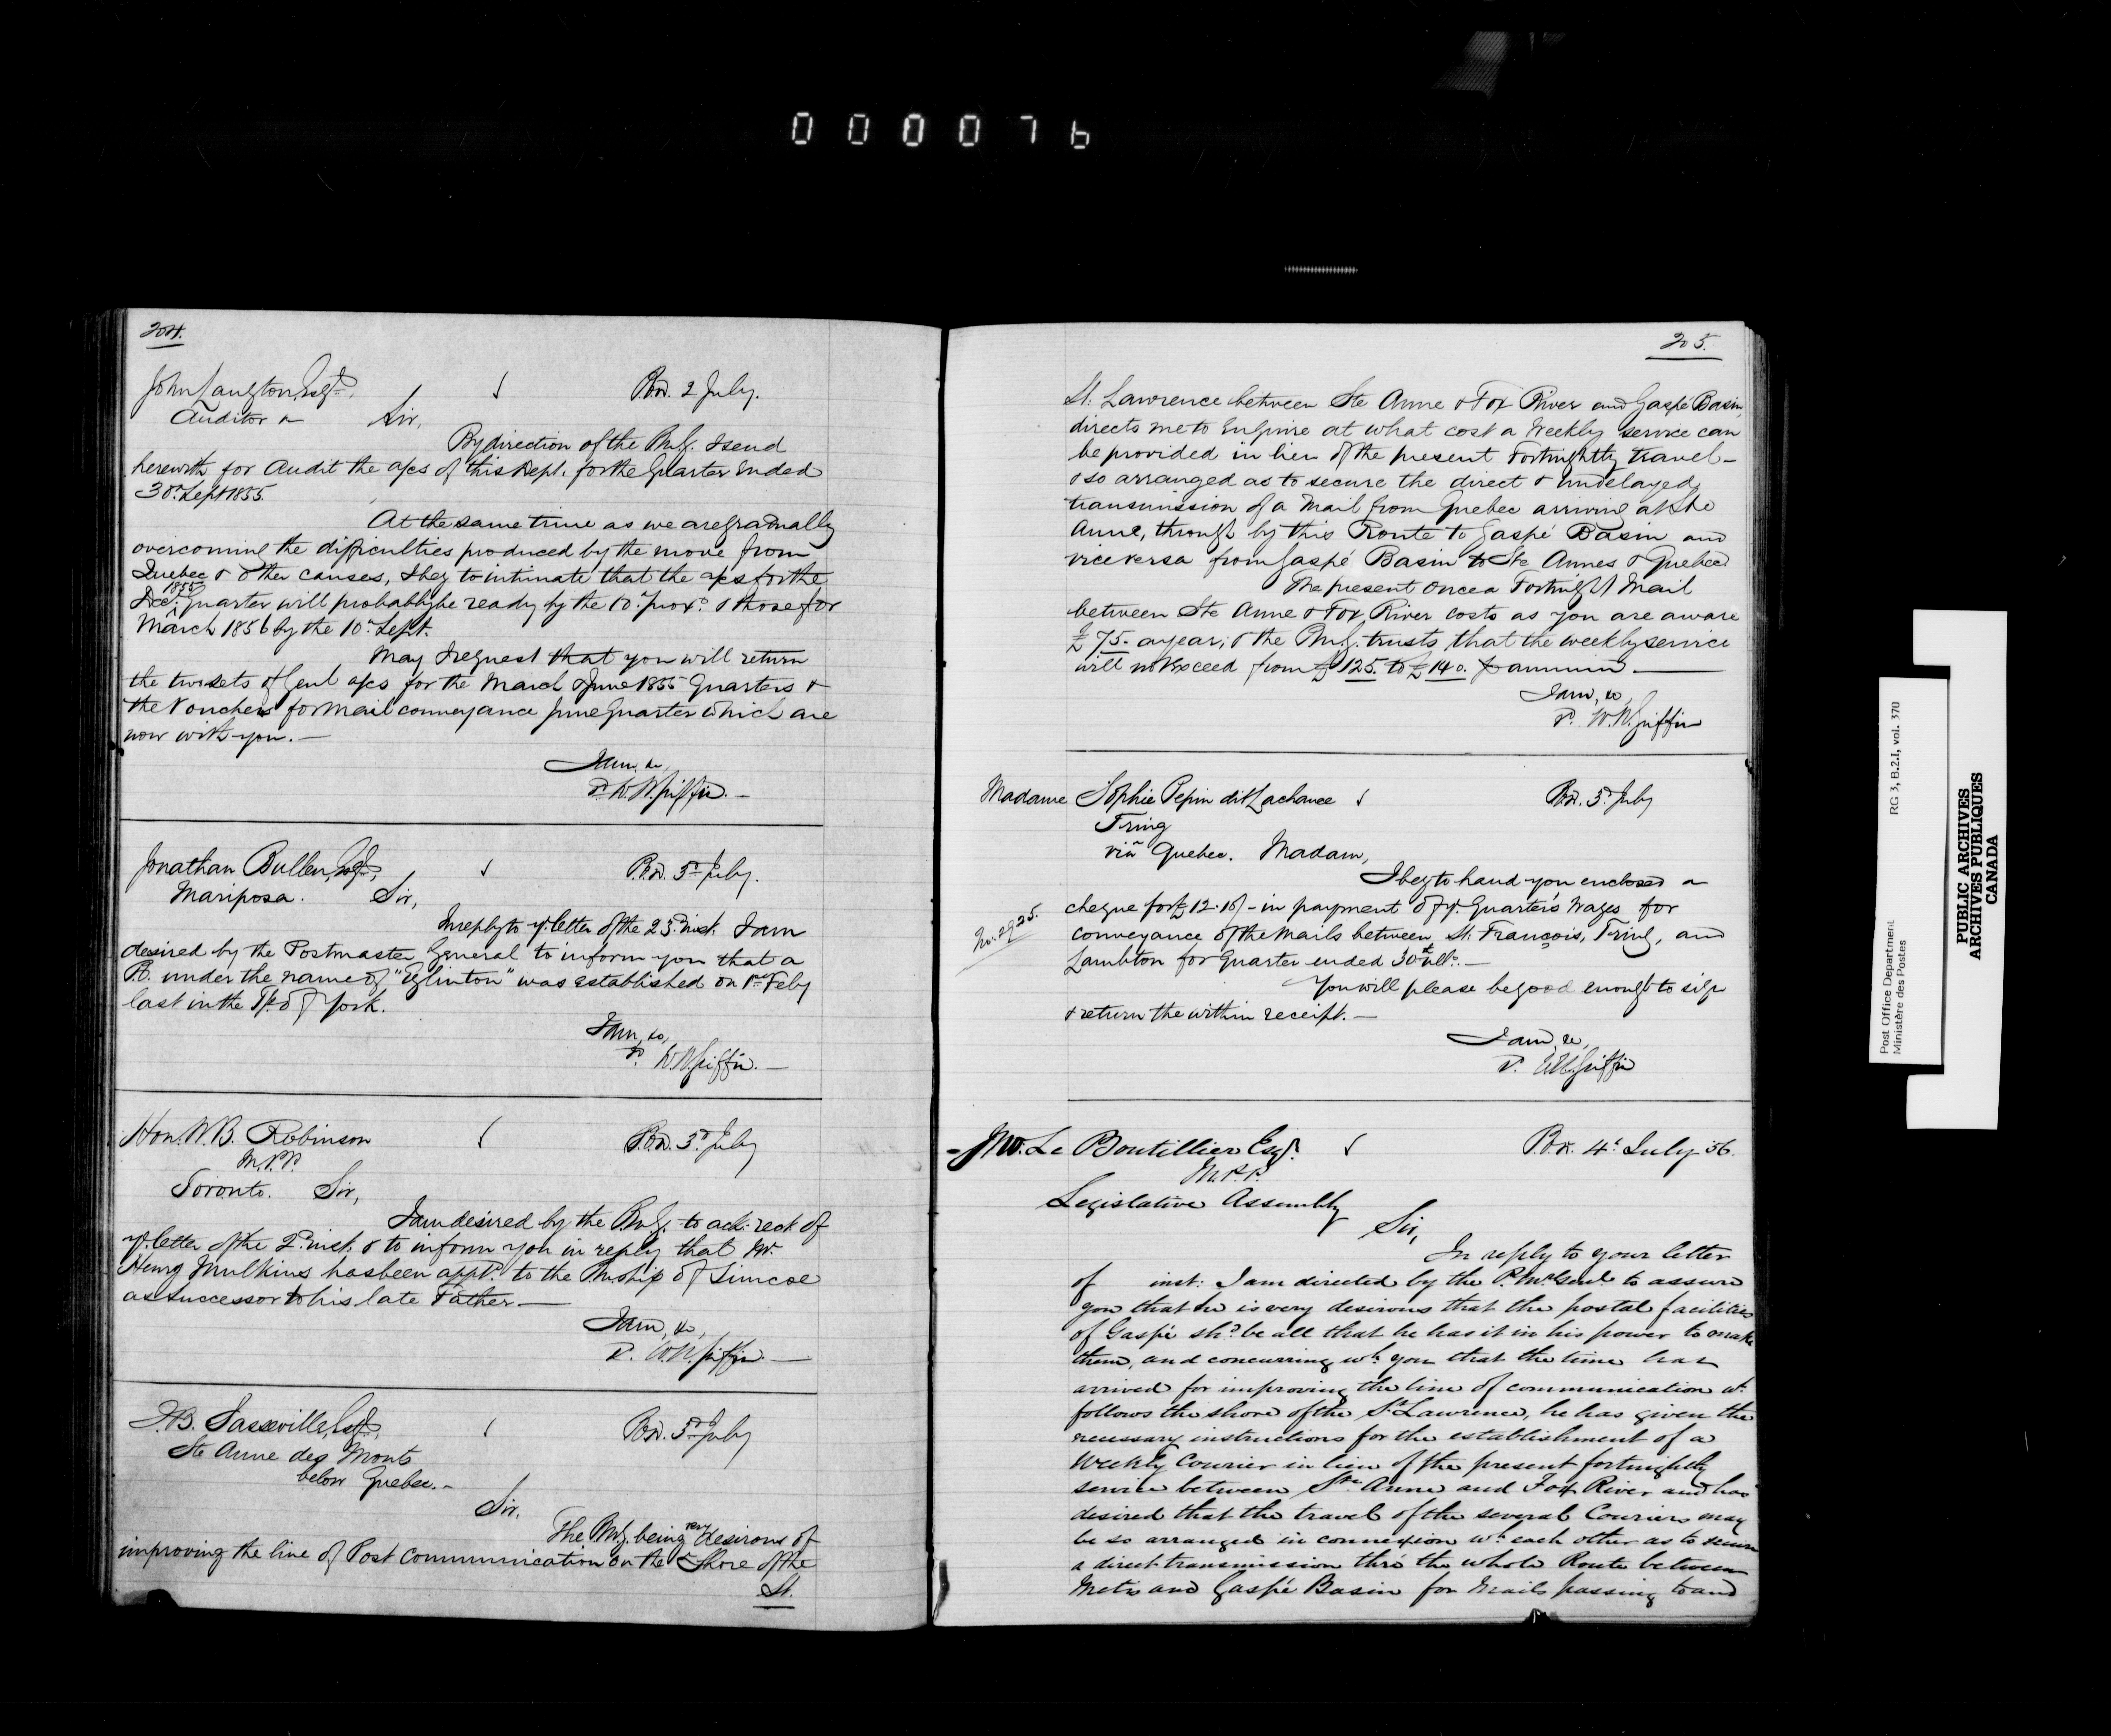 000076
204.
John Langton, Esqre.
Auditor &c
P.O.D. 2 July.
Sir,
By direction of the P.M.G. I send
herewith for Audit the a/cs of this Dept. for the Quarter ended
30th Sept 1855.
At the same time as we are gradually
overcoming the difficulties produced by the move from
Quebec & other causes, I beg to intimate that the a/cs for the
Decr. 1855 Quarter will probably be ready by the 10th prox. & those for
March 1856 by the 10th Sept.
May I request that you will return
the two sets of Genl a/cs for the March & June 1855 Quarters &
the Vouchers for Mail conveyance June Quarter which are
now with you. —
I am, &c,
P. W.H. Griffin. —
Jonathan Bullen, Esqre,
Mariposa.
P.O.D. 3rd July.
Sir,
In reply to yr. letter of the 23rd inst. I am
desired by the Postmaster General to inform you that a
P.O. under the name of "Eglinton" was established on 1st Feby
last in the Tp. of York.
I am, &c,
P. W.H. Griffin. —
Hon. W.B. Robinson
M.P.P.
Toronto.
P.O.D. 3rd July
Sir,
I am desired by the P.M.G. to ack: rect. of
yr. letter of the 2nd inst. & to inform you in reply that Mr.
Henry Mulkins has been appd. to the P.M.ship of Simcoe
as successor to his late Father. —
I am, &c,
P. W.H. Griffin. —
J.B. Sasseville, Esqre,
Ste Anne des Monts
below Quebec. -
P.O.D. 3rd July
Sir,
The P.M.G. being very desirous of
improving the line of Post Communication on the S. Shore of the
St.
205.
St. Lawrence between Ste Anne & Fox River and Gaspé Basin,
directs me to Enquire at what cost a Weekly service can
be provided in lieu of the present Fortnightly travel -
& so arranged as to secure the direct & undelayed
transmission of a Mail from Quebec arriving at Ste
Anne, through by this Route to Gaspé Basin and
vice versa from Gaspé Basin to Ste Annes & Quebec.
The present once a Fortnight Mail
between Ste Anne & Fox River costs as you are aware
£75. a year; & the P.M.G. trusts, that the weekly service
will not exceed from £125. to £140. P annum. —
I am, &c,
P. W.H. Griffin
Madame Sophie Pepin dit Lachance
Tring
viâ Quebec.
P.O.D. 3rd July
Madam,
I beg to hand you enclosed a
No. 2925.
cheque for £12.10/- in payment of yr. Quarter's Wages for
conveyance of the Mails between St. François, Tring, and
Lambton for Quarter ended 30th ulto. —
You will please be good enough to sign
& return the within receipt. —
I am, &c,
P. W.H. Griffin
Jno. Le Boutillier Esqr.
M.P.P.
Legislative Assembly
P.O.D. 4th July 56.
Sir,
In reply to your letter
of inst: I am directed by the P. Mr. Genl. to assure
you that he is very desirous that the postal facilities
of Gaspé shd. be all that he has it in his power to make
them, and concurring wh. you that the time has
arrived for improving the line of communication wh.
follows the shore of the St. Lawrence, he has given the
necessary instructions for the establishment of a
Weekly Courier in lieu of the present fortnightly
service between Ste. Anne and Fox River and has
desired that the travel of the several Couriers may
be so arranged in connexion wh. each other as to secure
a direct transmission thro' the whole Route between
Metis and Gaspé Basin for Mails passing to and
Post Office Department
Ministère des Postes
RG 3, B.2.I, vol. 370
PUBLIC ARCHIVES
ARCHIVES PUBLIQUES
CANADA